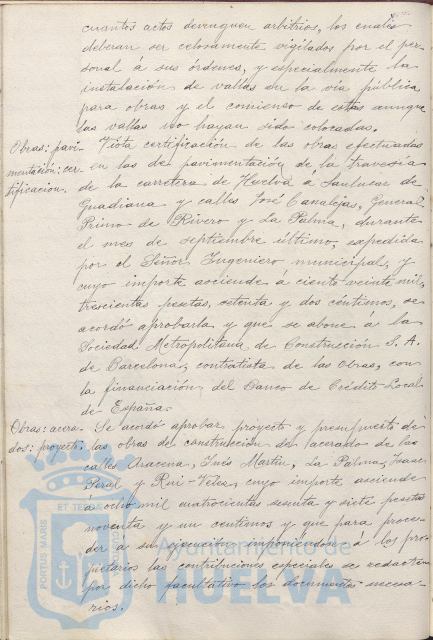 cuantos actos devenguen arbitrios, los cuales
deberan ser celosamente vigilados por el per-
sonal á sus órdenes, y especialmente la
instalación de vallas en la via pública
para obras y el comienso de estas aunque
las vallas no hayan sido colocadas.
Obras: pavi-
mentación: cer-
tificacion.
Vista certificación de las obras efectuadas
en las de pavimentación de la travesia
de la carretera de Huelva á Sanlucar de
Guadiana y calles José Canalejas, General
Primo de Rivero y La Palma, durante
el mes de septiembre último, expedida
por el Señor Ingeniero municipal, y
cuyo importe asciende á ciento veinte mil
trescientas pesetas, setenta y dos céntimos, se
acordó aprobarla y que se abone á la
Sociedad Metropolitana de Construcción S. A.
de Barcelona, contratista de las obras, con
la financiación del Banco de Crédito Local
de España.
Obras: acera-
dos: proyecto.
Se acordó aprobar proyecto y presupuesto de
las obras de construcción del acerado de las
calles Aracena, Inés Martin, La Palma, Isaac
Peral y Rui-Velez, cuyo importe asciende
á ocho mil cuatrocientas sesenta y siete pesetas
noventa y un centimos y que para proce-
der a su ejecución imponiendose á los pro-
pietarios las contribuciones especiales se redacten
por dicho facultativo los documentos necesa-
rios.
PORTUS MARIS ET TERRAE CUSTODIA
Ayuntamiento de
HUELVA